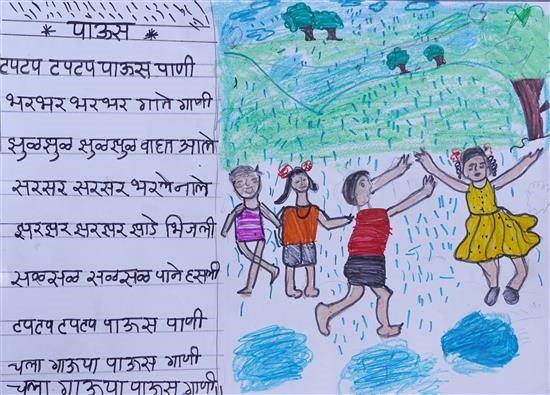 * पाऊस *
टपटप टपटप पाऊस पाणी
भरभर भरभर गाते गाणी
झुळझुळ झुळझुळ वाहत आले
सरसर सरसर भरले नाले
झरझर सरसर झाडे भिजली
सळसळ सळसळ पाने हसली
टपटप टपटप पाऊस पाणी
चला गाऊया पाऊस गाणी
चला गाऊया पाऊस गाणी